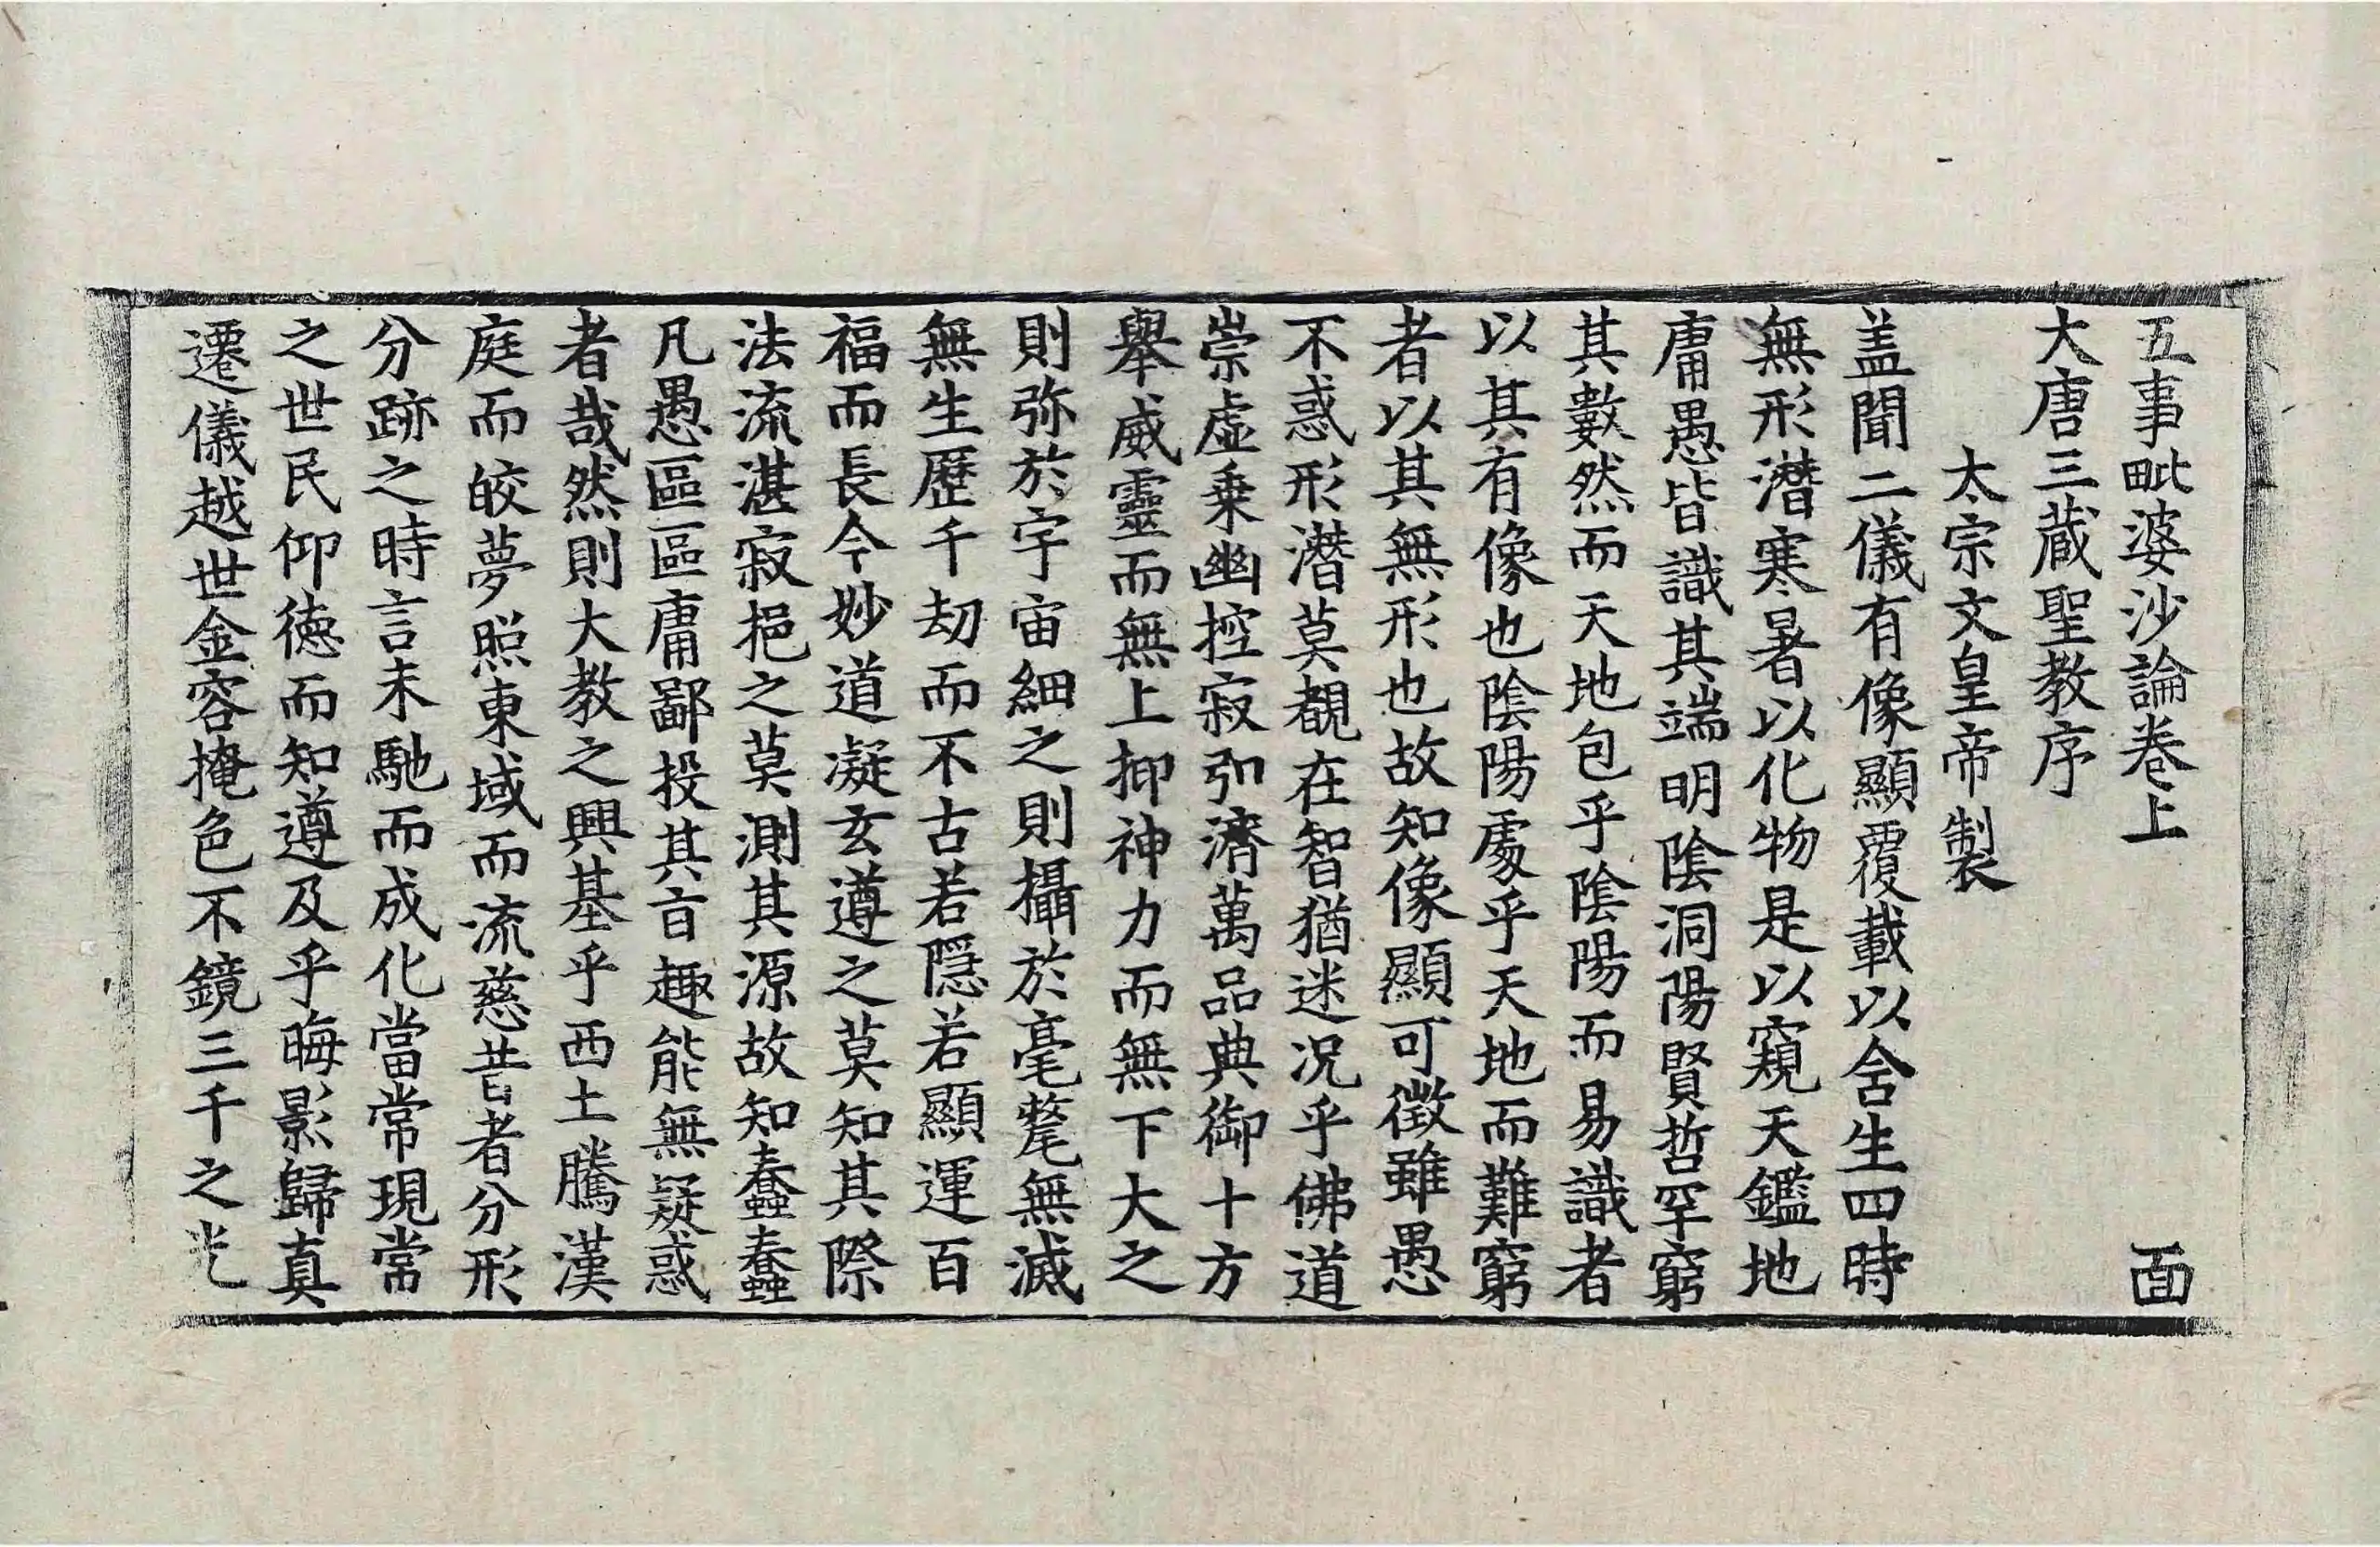 五事毗婆沙論卷上　面
大唐三蔵聖教序
太宗文皇帝製
盖聞二儀有像顯覆載以含生四時
無形潜寒暑以化物是以窺天鑑地
庸愚皆識其端明陰洞陽賢哲罕窮
其數然而天地包乎陰陽而易識者
以其有像也陰陽處乎天地而難窮
者以其無形也故知像顯可徵雖愚
不惑形潜莫覩在智猶迷况乎佛道
崇虚乗幽控寂引濟萬品典御十方
舉威靈而無上抑神力而無下大之
則弥於宇宙細之則攝於毫氂無滅
無生歷千劫而不古若隠若顯運百
福而長今妙道凝玄遵之莫知其際
法流湛寂挹之莫測其源故知蠢蠢
凡愚區區庸鄙投其㫖趣能無疑惑
者哉然則大教之興基乎西土騰漢
庭而皎夢照東域而流慈昔者分形
分跡之時言未馳而成化當常現常
之世民仰徳而知遵及乎晦影歸真
遷儀越世金容掩色不鏡三千之光